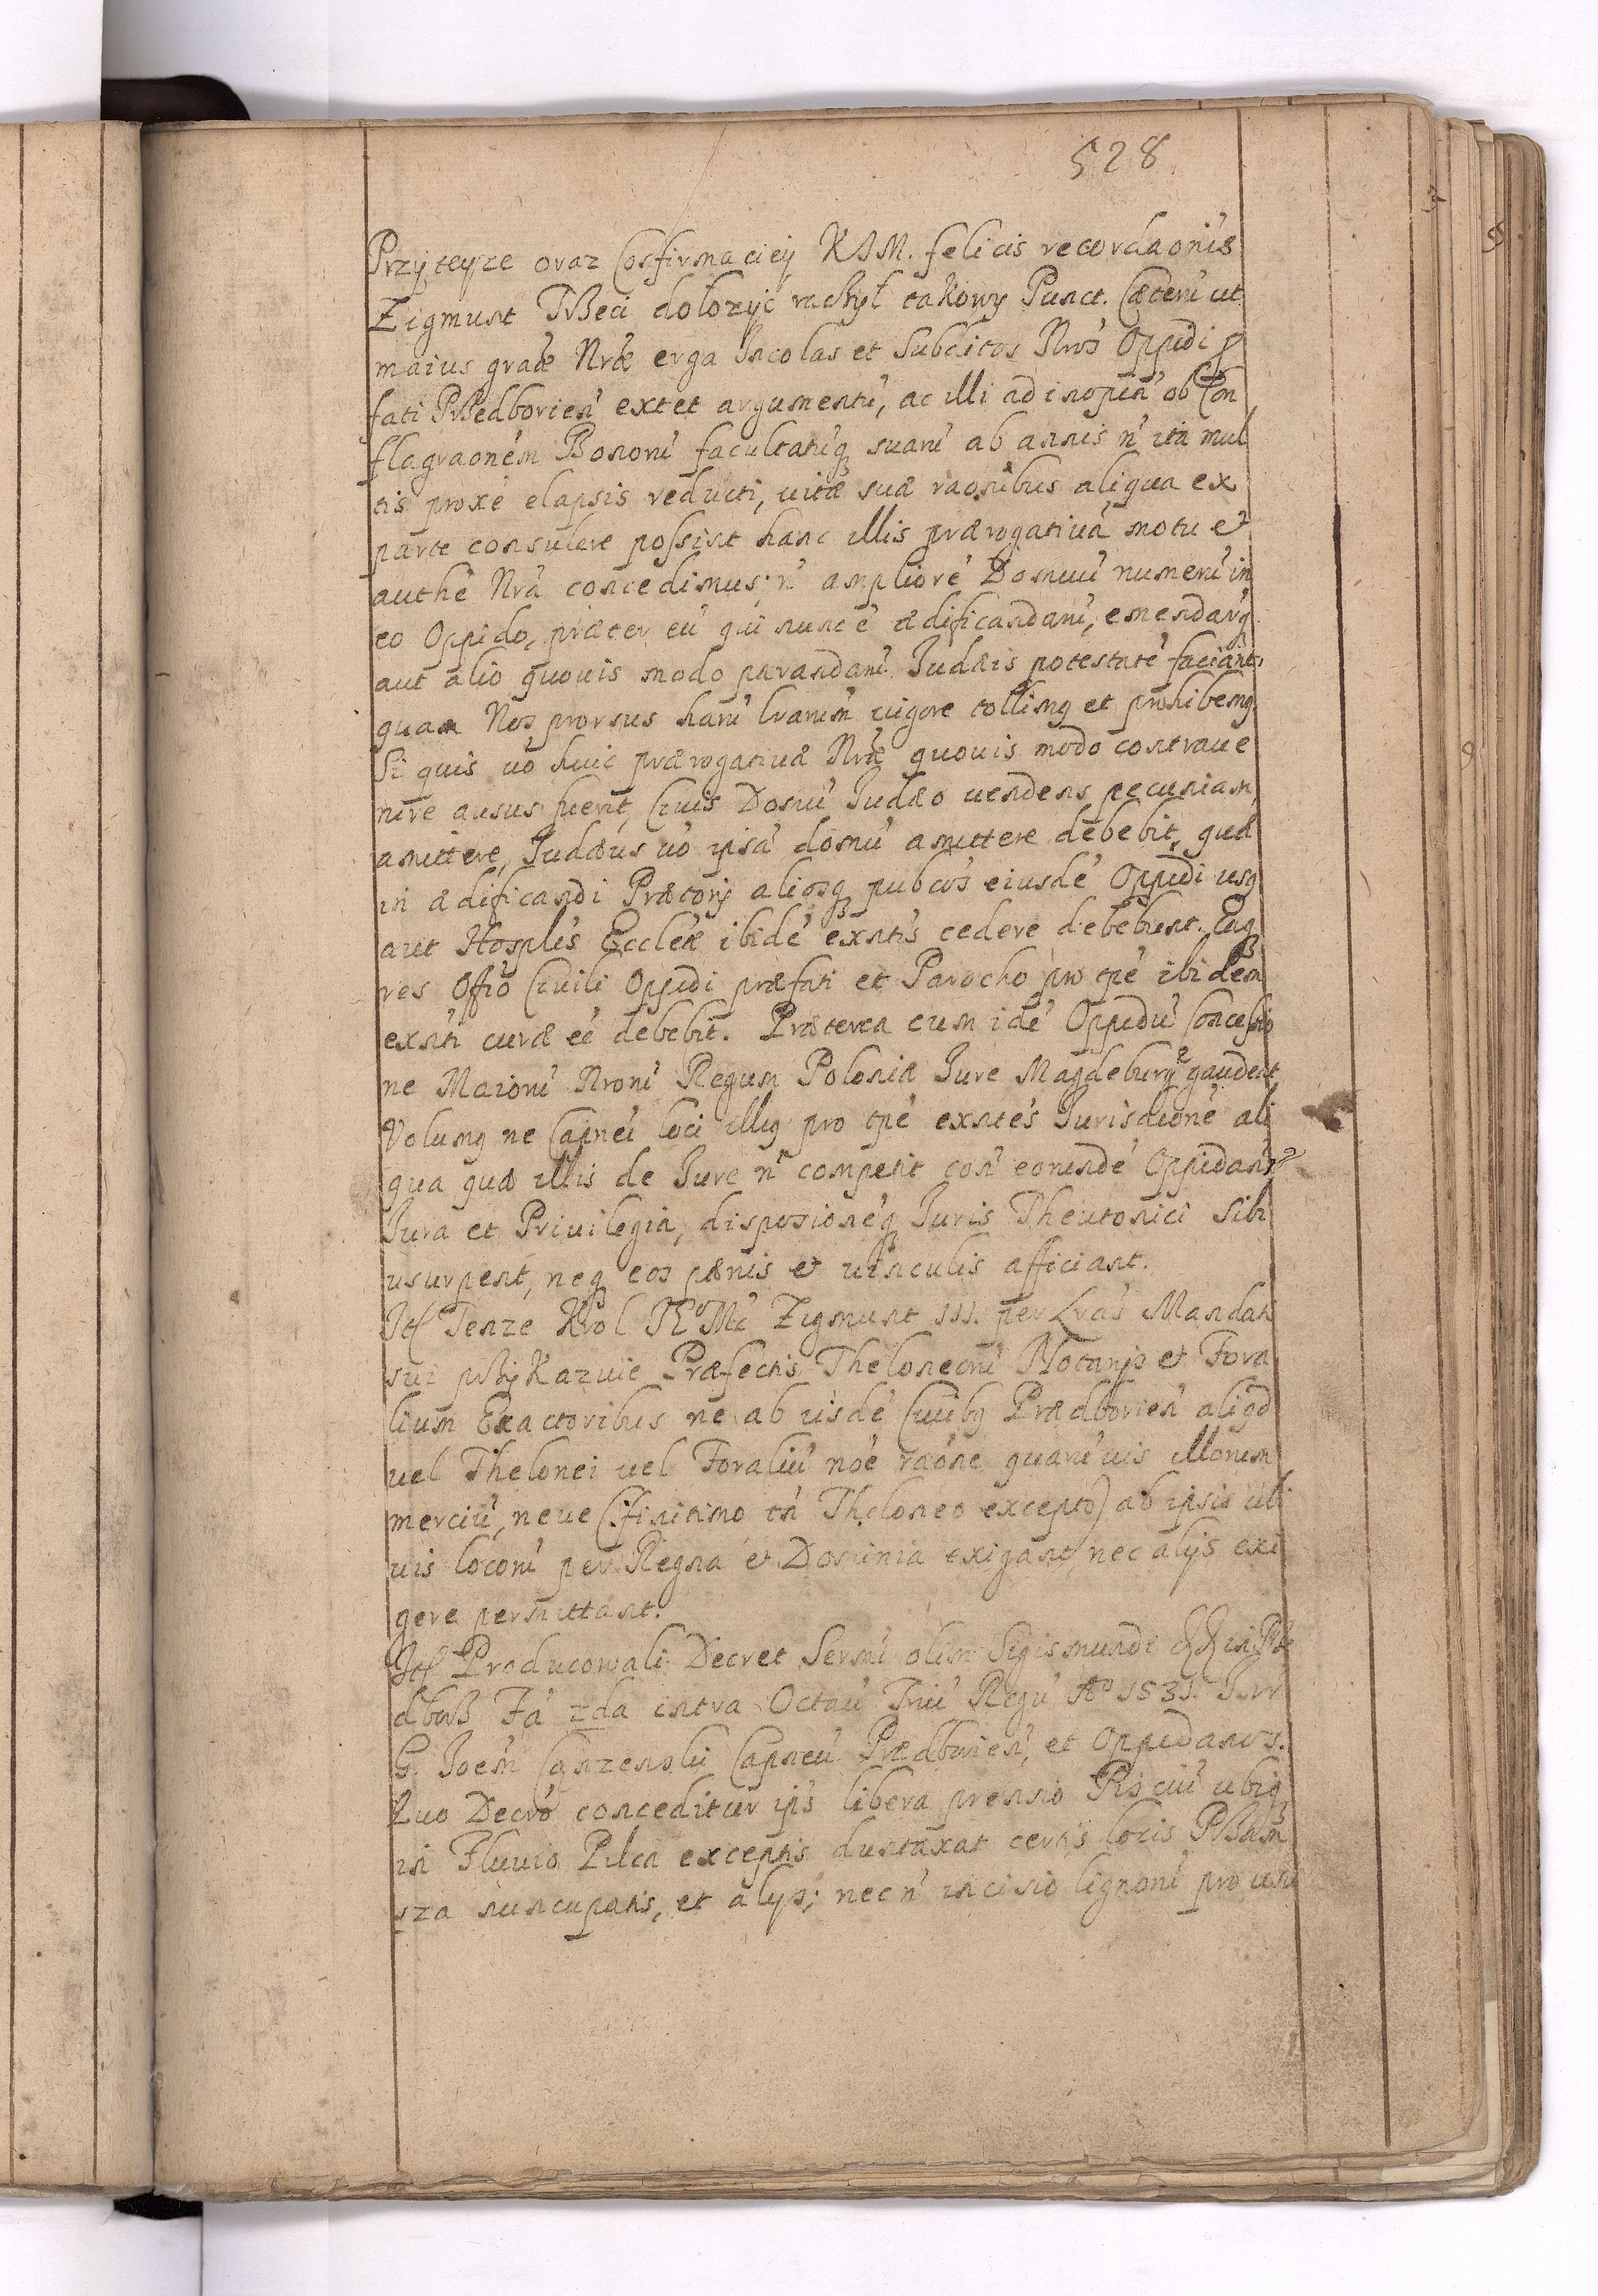 528
Przyteyze oraz Confirmaciey KJM. felicis recordaonis
Zigmunt IIIeci dolozyc raczył takowy Punct. Cæterú ut
maius graæ Nræ erga Incolas et Subditos Nros Oppidi p
fati Przedborień extet argumentú, ac illi ad inopiá ob Con
flagraoném Bonorú facultatúq suarú ab annis ń ita mul
tis proxé elapsis reducti, uitæ suæ raonibus aliqua ex
parte consulere possint hanc illis prærogatiuá motu et
authé Nrá concedimus; ń amplioré Domuú numerú in
eo Oppido, præter eú qui nunc é ædificandarú, emendarúq
aut alio quouis modo parandarú Judæis potestaté faciant,
quam Nos prorsus harú lrarum uigore tollimq et prohibemq.
Si quis uó huic prærogatiuæ Nræ quouis modo contraue
nire ausus fuerit, Ciuis Domú Judæo uendens pecuniam
amittere, Judæus uó ipsá domú amittere debebit, quæ
in ædificandi Prætorij aliosq pubcos eiusdé Oppidi usq
aut Hosplis Ecclæ ibidé exntis cedere debebunt. Eaq
res Offio Ciuili Oppidi præfati et Parocho pro tpé ibidem
exnti curæ eé debebit. Præterea cum idé Oppidú Concessio
ne Maiorú Nrorú Regum Poloniæ Jure Magdeburg gaudeat
Volumq ne Capnei loci illiq pro tpé exntés Jurisdioné ali
qua quæ illis de Jure ń competit con eorundé Oppidanor
Jura et Priuilegia, disposionéq Juris Theutonici sibi
usurpent, neq eos pænis et uinculis afficiant.
Itf Tenze Krol Je Mc Zigmunt III. per Lras Mandati
sui przykazuie Præfectis Theloneorú Notarijs et Fora
lium Exactoribus ne ab iisdé Ciuibq Prædborień aliqd
uel Thelonei uel Foraliú noé raone quarúuis illorum
merciú, neue (finitimo tń Theloneo excepto) ab ipsis ubi
uis locorú per Regna et Dominia exigant, nec alijs exi
gere permittant.
Itf Producowali Decret Sermi olim Sigismundi in Prze
dborz Fá 2da intra Octau Triú Regú Ao 1531. Intr
G. Joem Capneú Prædborień, et Oppidanos.
Quo Decro conceditur ijs libera prensio Pisciú ubiq
in Fluuio Pilca exceptis duntaxat certis locis
sza nuncupatis, et alijs; nec ń incisio lignorú pro usu